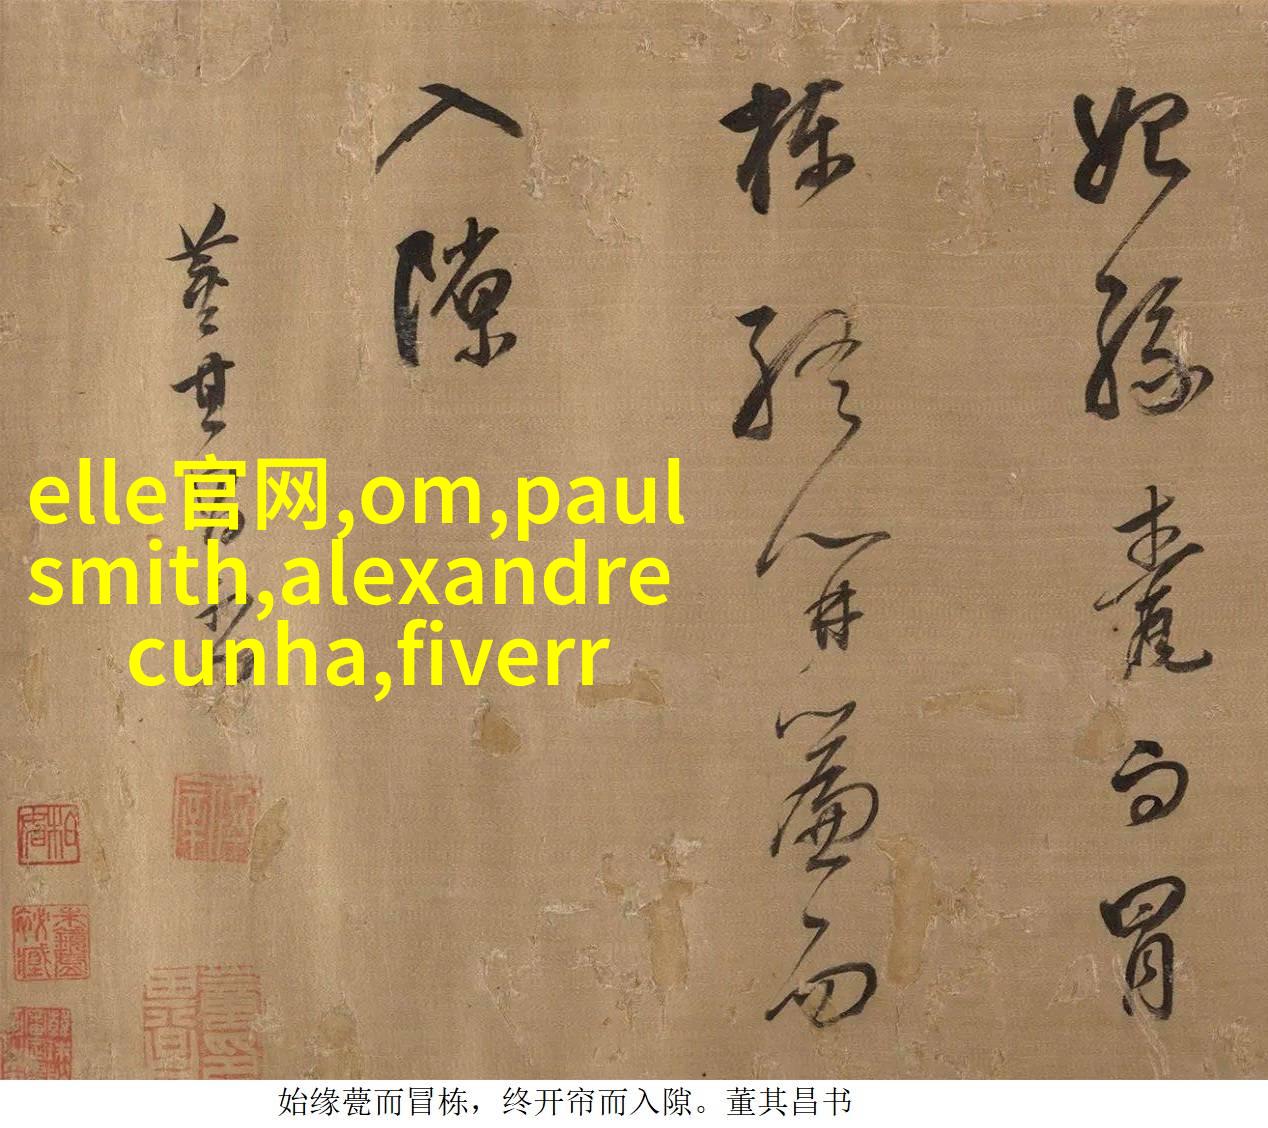 始缘甍而冒
栋终开帘而
入隙
董其昌书
elle官网,om,paul
smith,alexandre
cunha,fiverr
始缘薨而冒栋，终开帘而入隙。董其昌书